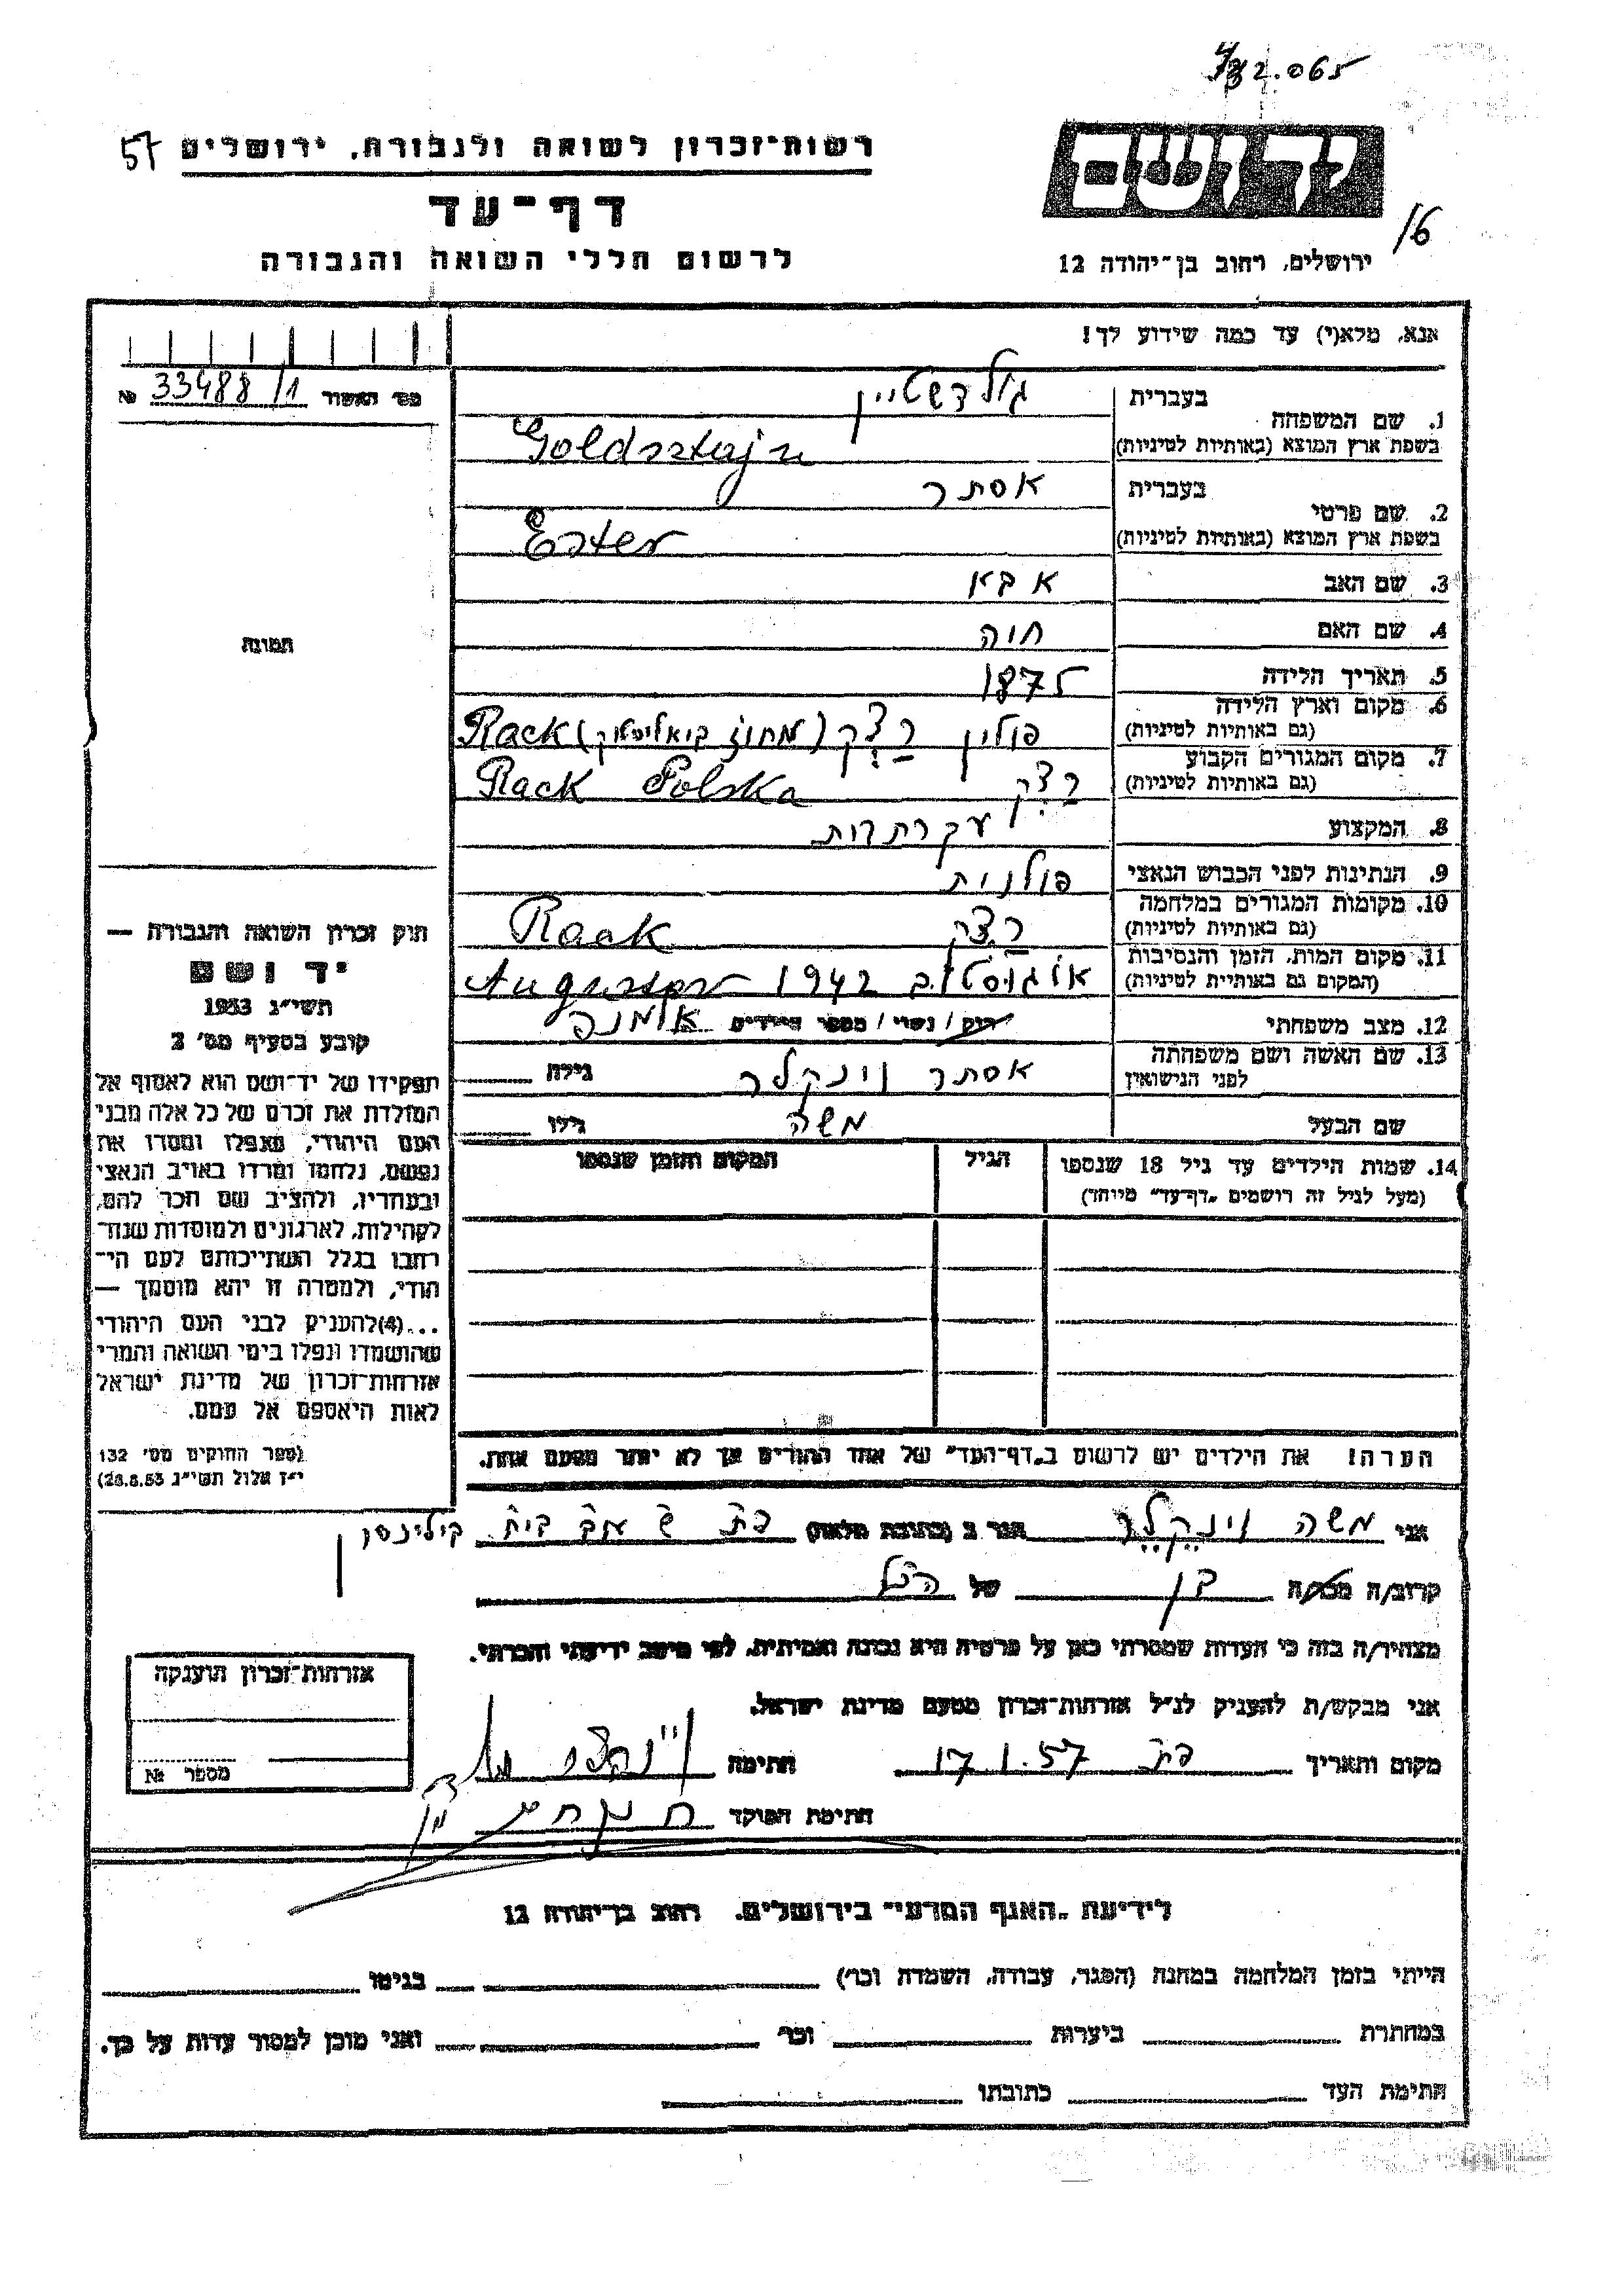 732.065
57 רשות־זכרון לשואה ולגבורה, ירושלים
דף־עד
לרשום חללי השואה והגבורה
יד ושם
16
ירושלים, רחוב בן־יהודה 12
אנא, מלא(י) עד כמה שידוע לך!
מס׳ האשור № 33488/1
תמונה
1. שם המשפחה
בעברית גולדשטיין
בשפת ארץ המוצא (באותיות לטיניות) Goldsztajn
2. שם פרטי
בעברית אסתר
בשפת ארץ המוצא (באותיות לטיניות) Ester
3. שם האב אבא
4. שם האם חוה
5. תאריך הלידה 1875
6. מקום וארץ הלידה
(גם באותיות לטיניות) פולין רצק (מחוז ביאליסטוק) Rack
7. מקום המגורים הקבוע
(גם באותיות לטיניות) רצק Rack Polska
8. המקצוע עקרת בית
9. הנתינות לפני הכבוש הנאצי פולנית
10. מקומות המגורים במלחמה
(גם באותיות לטיניות) רצק Rack
11. מקום המות, הזמן והנסיבות
(המקום גם באותיות לטיניות) 1942
12. מצב משפחתי רוק/נשוי/מספר הילדים אלמנה
13. שם האשה ושם משפחתה
לפני הנישואין אסתר וינקלר גילה
שם הבעל משה גילו
14. שמות הילדים עד גיל 18 שנספו
(מעל לגיל זה רושמים „דף־עד” מיוחד)
הגיל
המקום והזמן שנספו
הערה! את הילדים יש לרשום ב„דף־העד” של אחד ההורים אך לא יותר מפעם אחת.
חוק זכרון השואה והגבורה —
יד ושם
תשי״ג 1953
קובע בסעיף מס׳ 2
תפקידו של יד־ושם הוא לאסוף אל
המולדת את זכרם של כל אלה מבני
העם היהודי, שנפלו ומסרו את
נפשם, נלחמו ומרדו באויב הנאצי
ובעוזריו, ולהציב שם וזכר להם,
לקהילות, לארגונים ולמוסדות שנח־
רבו בגלל השתייכותם לעם הי־
הודי, ולמטרה זו יהא מוסמך —
...(4) להעניק לבני העם היהודי
שהושמדו ונפלו בימי השואה והמרי
אזרחות־זכרון של מדינת ישראל
לאות היאספם אל עמם.
(ספר החוקים מס׳ 132
י״ז אלול תשי״ג 28.8.53)
אני משה וינקלר הגר ב (כתובת מלאה) פת בית בילינסון
קרוב/ה מכר/ה בן של הנ״ל
מצהיר/ה בזה כי העדות שמסרתי כאן על פרטיה היא נכונה ואמיתית, לפי מיטב ידיעתי והכרתי.
אני מבקש/ת להעניק לנ״ל אזרחות־זכרון מטעם מדינת ישראל.
מקום ותאריך פת 17.1.57 חתימה
חתימת הפוקד
אזרחות־זכרון הוענקה
מספר №
לידיעת „האגף המדעי” בירושלים, רחוב בן־יהודה 12
הייתי בזמן המלחמה במחנה (הסגר, עבודה, השמדה וכו׳) בגיטו
במחתרת ביערות וכו׳ ואני מוכן למסור עדות על כך.
חתימת העד כתובתו